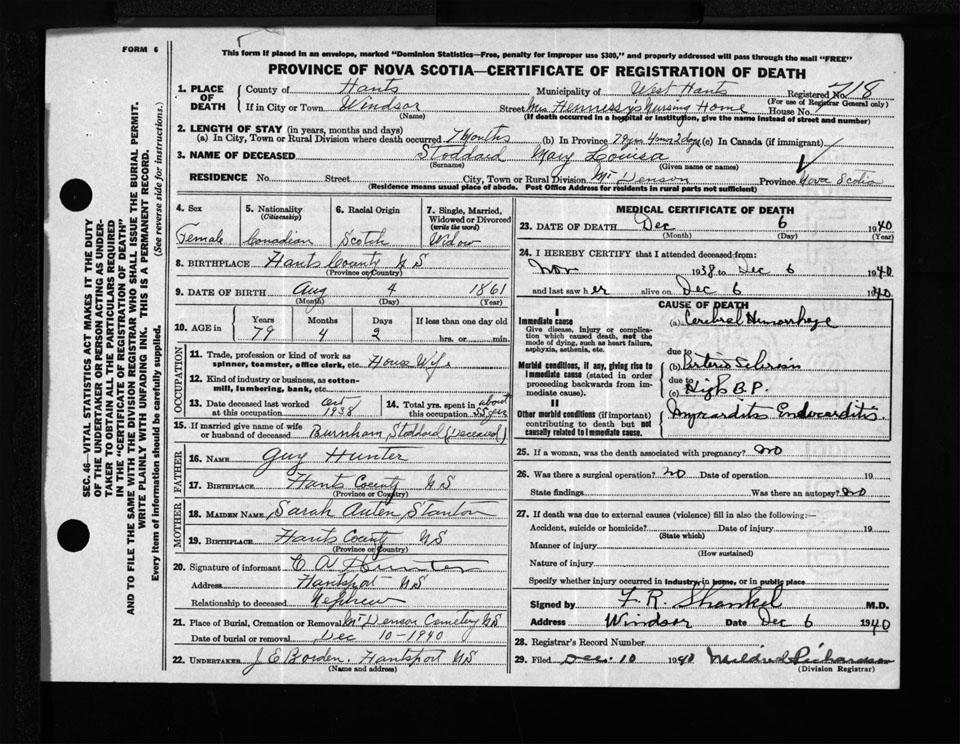 FORM 6
This form if placed in an envelope, marked "Dominion Statistics—Free, penalty for improper use $300," and properly addressed will pass through the mail "FREE"
PROVINCE OF NOVA SCOTIA—CERTIFICATE OF REGISTRATION OF DEATH
SEC. 46—VITAL STATISTICS ACT MAKES IT THE DUTY
OF THE UNDERTAKER OR PERSON ACTING AS UNDER-
TAKER TO OBTAIN ALL THE PARTICULARS REQUIRED
IN THE "CERTIFICATE OF REGISTRATION OF DEATH"
AND TO FILE THE SAME WITH THE DIVISION REGISTRAR WHO SHALL ISSUE THE BURIAL PERMIT.
WRITE PLAINLY WITH UNFADING INK. THIS IS A PERMANENT RECORD.
Every item of information should be carefully supplied. (See reverse side for instructions.)
1. PLACE OF DEATH County of Hants Municipality of West Hants Registered No. 718
(For use of Registrar General only)
If in City or Town Windsor Street Mrs Hennessy's Nursing Home House No.
(Name) (If death occurred in a hospital or institution, give the name instead of street and number)
2. LENGTH OF STAY (in years, months and days)
(a) In City, Town or Rural Division where death occurred 7 Months (b) In Province 79 yrs 4 mos 2 days (c) In Canada (if immigrant)
3. NAME OF DECEASED Stoddard Mary Louisa
(Surname) (Given name or names)
RESIDENCE No. Street City, Town or Rural Division Mt Denson Province Nova Scotia
(Residence means usual place of abode. Post Office Address for residents in rural parts not sufficient)
4. Sex 5. Nationality (Citizenship) 6. Racial Origin 7. Single, Married, Widowed or Divorced (write the word)
Female Canadian Scotch Widow
8. BIRTHPLACE Hants County N S
(Province or Country)
9. DATE OF BIRTH Aug 4 1861
(Month) (Day) (Year)
10. AGE in Years Months Days If less than one day old
79 4 2 hrs. or min.
OCCUPATION
11. Trade, profession or kind of work as spinner, teamster, office clerk, etc. House Wife
12. Kind of industry or business, as cotton-mill, lumbering, bank, etc.
13. Date deceased last worked at this occupation Oct 1938
14. Total yrs. spent in this occupation about 55 yrs
15. If married give name of wife or husband of deceased Burnham Stoddard (Deceased)
FATHER
16. NAME Guy Hunter
17. BIRTHPLACE Hants County N S
(Province or Country)
MOTHER
18. MAIDEN NAME Sarah Stanton
19. BIRTHPLACE Hants County N S
(Province or Country)
20. Signature of informant C A Hunter
Address Hantsport N S
Relationship to deceased Nephew
21. Place of Burial, Cremation or Removal Mt Denson Cemetery N S
Date of burial or removal Dec 10-1940
22. UNDERTAKER J E Borden. Hantsport N S
(Name and address)
MEDICAL CERTIFICATE OF DEATH
23. DATE OF DEATH Dec 6 1940
(Month) (Day) (Year)
24. I HEREBY CERTIFY that I attended deceased from:
Nov 1938 to Dec 6 1940
and last saw her alive on Dec 6 1940
CAUSE OF DEATH
I
Immediate cause
Give disease, injury or complication which caused death, not the mode of dying, such as heart failure, asphyxia, asthenia, etc.
(a) Cerebral Hemorrhage
Morbid conditions, if any, giving rise to immediate cause (stated in order proceeding backwards from immediate cause).
due to
(b) Arterio Sclerosis
due to
(c) High B.P.
II
Other morbid conditions (if important) contributing to death but not causally related to immediate cause.
Myocarditis Endocarditis.
25. If a woman, was the death associated with pregnancy? No
26. Was there a surgical operation? No Date of operation 19
State findings Was there an autopsy? No
27. If death was due to external causes (violence) fill in also the following:—
Accident, suicide or homicide? Date of injury 19
(State which)
Manner of injury
(How sustained)
Nature of injury
Specify whether injury occurred in industry, in home, or in public place
Signed by F. R. Shankel M.D.
Address Windsor Date Dec 6 1940
28. Registrar's Record Number
29. Filed Dec. 10 1940 Mildred Richardson
(Division Registrar)